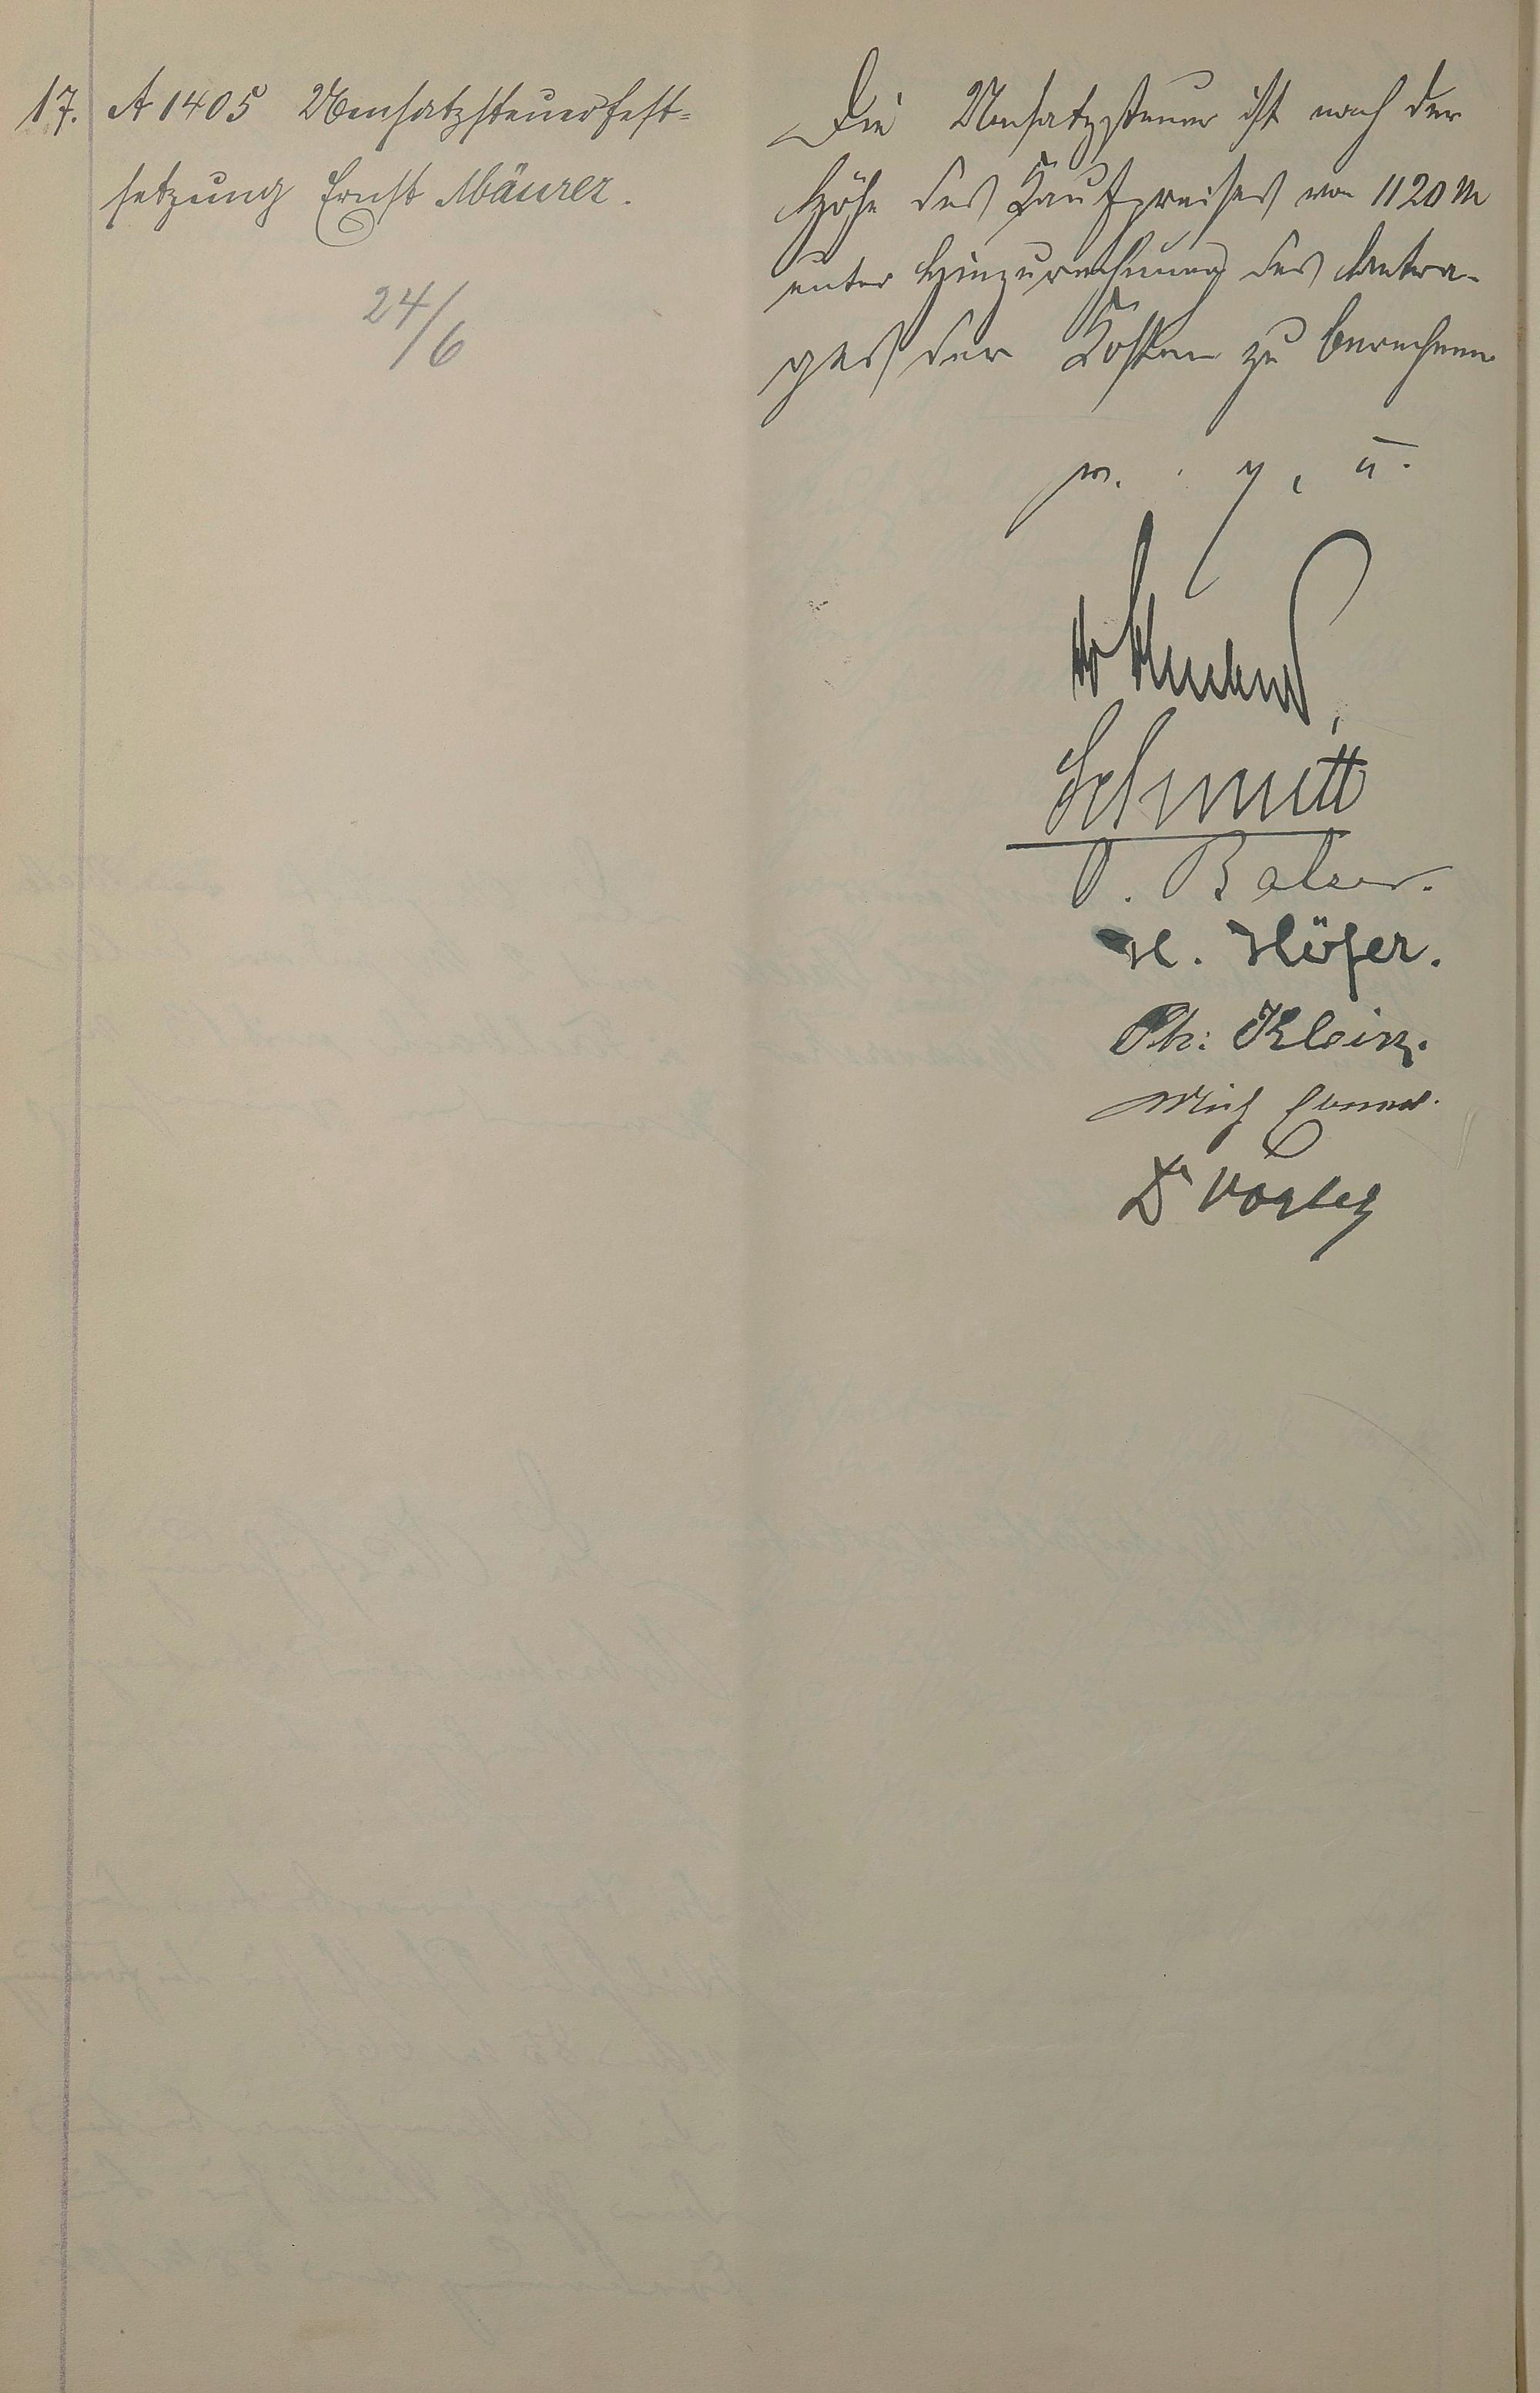 17. A 1405 Umsatzsteuerfest=
setzung Ernst Mäurer.
24/6
Die Umsatzsteuer ist nach der
Höhe des Kaufpreises von 1120 M
unter Hinzurechnung des Betra-
ges der Kosten zu berechnen
v. g. u.
Schmitt
Balser.
H. Höfer.
Ph: Klein.
Dr